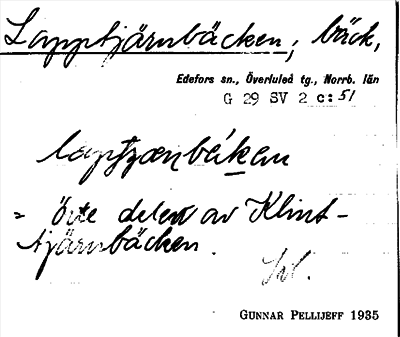 Lapptjärnbäcken, bäck,
Edefors sn., Överluleå tg., Norrb. län
G 29 SV 2 c:51
= övre delen av Klint-
tjärnbäcken.
GUNNAR PELLIJEFF 1935